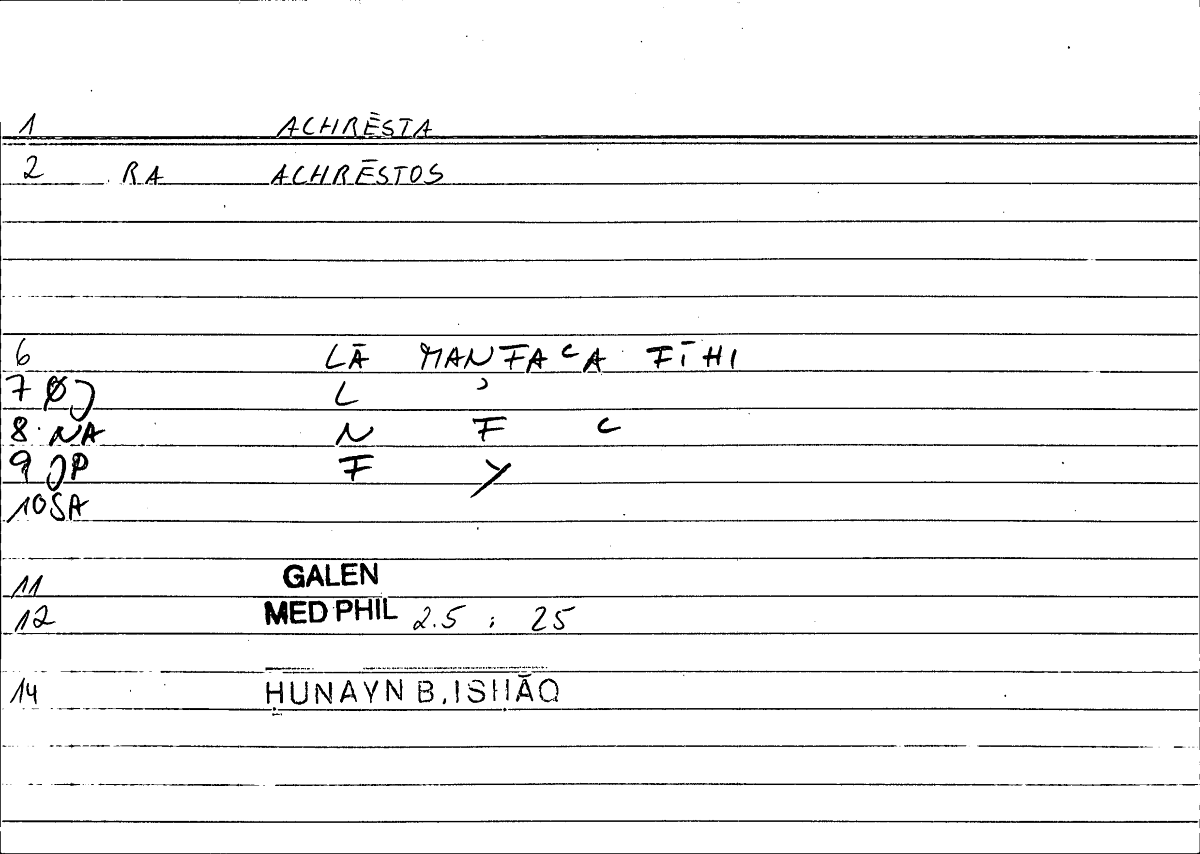 1 ACHRĒSTA
2 RA ACHRĒSTOS
6 LĀ MANFAᶜA FĪHI
7 ØJ L ʾ
8 NA N F ᶜ
9 JP F Y
10 SA
11 GALEN
12 MED PHIL 2.5 : 25
14 ḤUNAYN B. ISḤĀQ